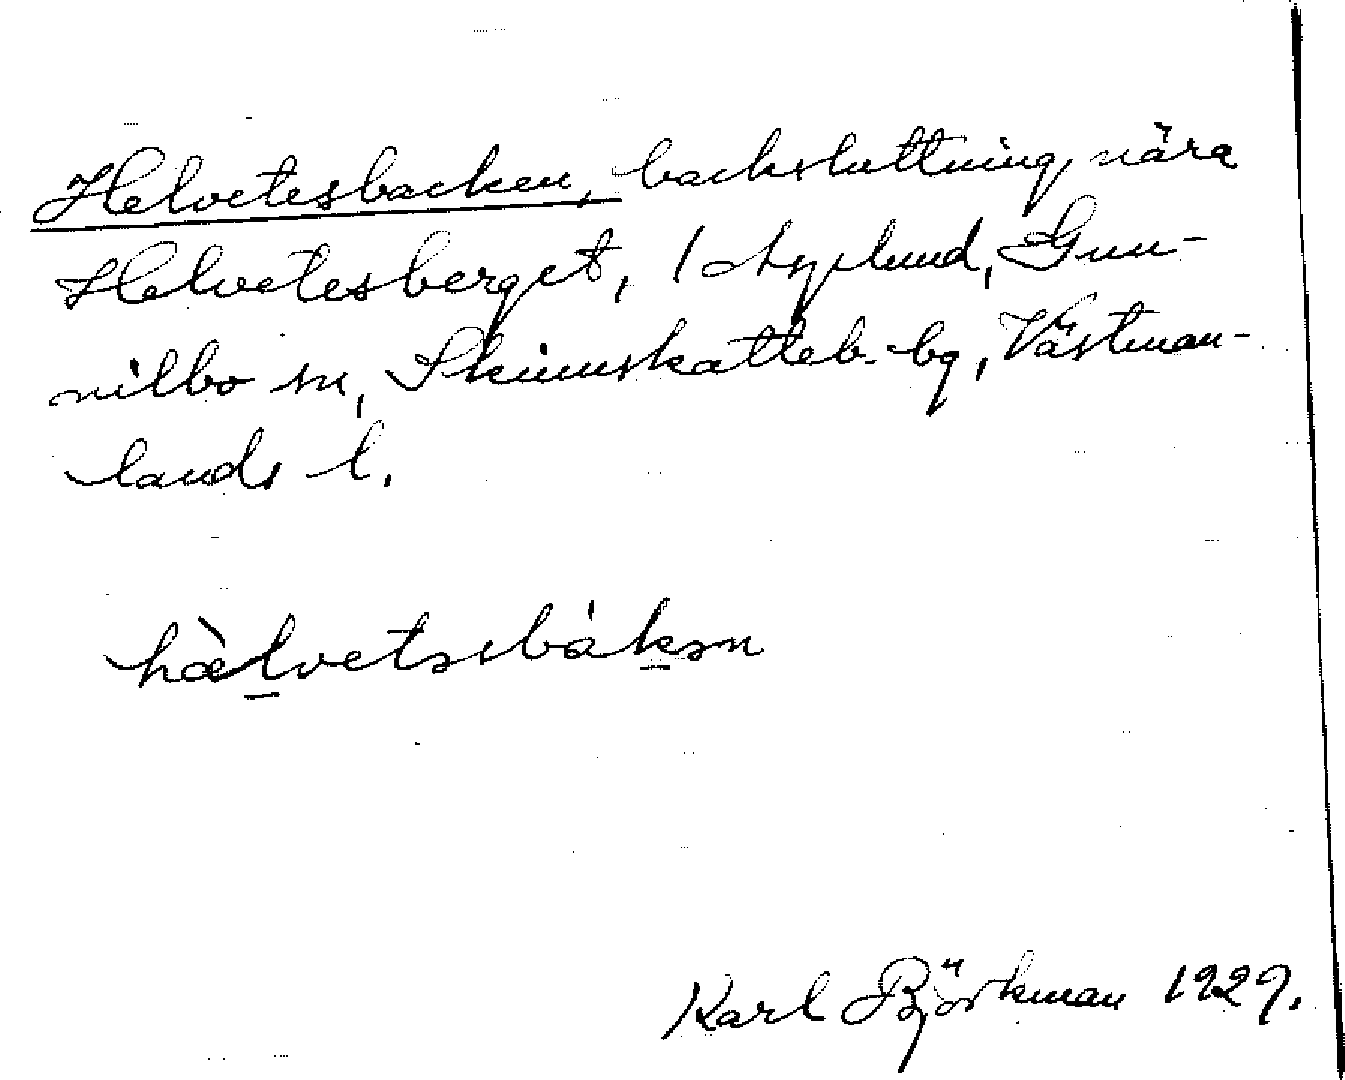 Helvetesbacken, backsluttning nära
Helvetesberget, 1 Nylund, Gun-
nilbo sn, Skinnskatteb. bg, Västman-
lands l.
hæ̀lvetsbákən
Karl Björkman 1929.